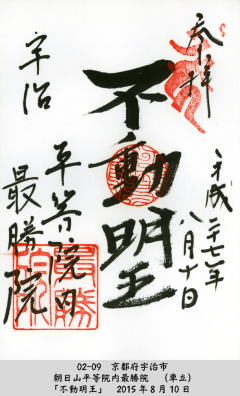 奉拝
平成二十七年
八月十日
不動明王
宇治
平等院内
最勝院
最勝院印
02-09 京都府宇治市
朝日山平等院内最勝院 (単立)
「不動明王」 2015年8月10日